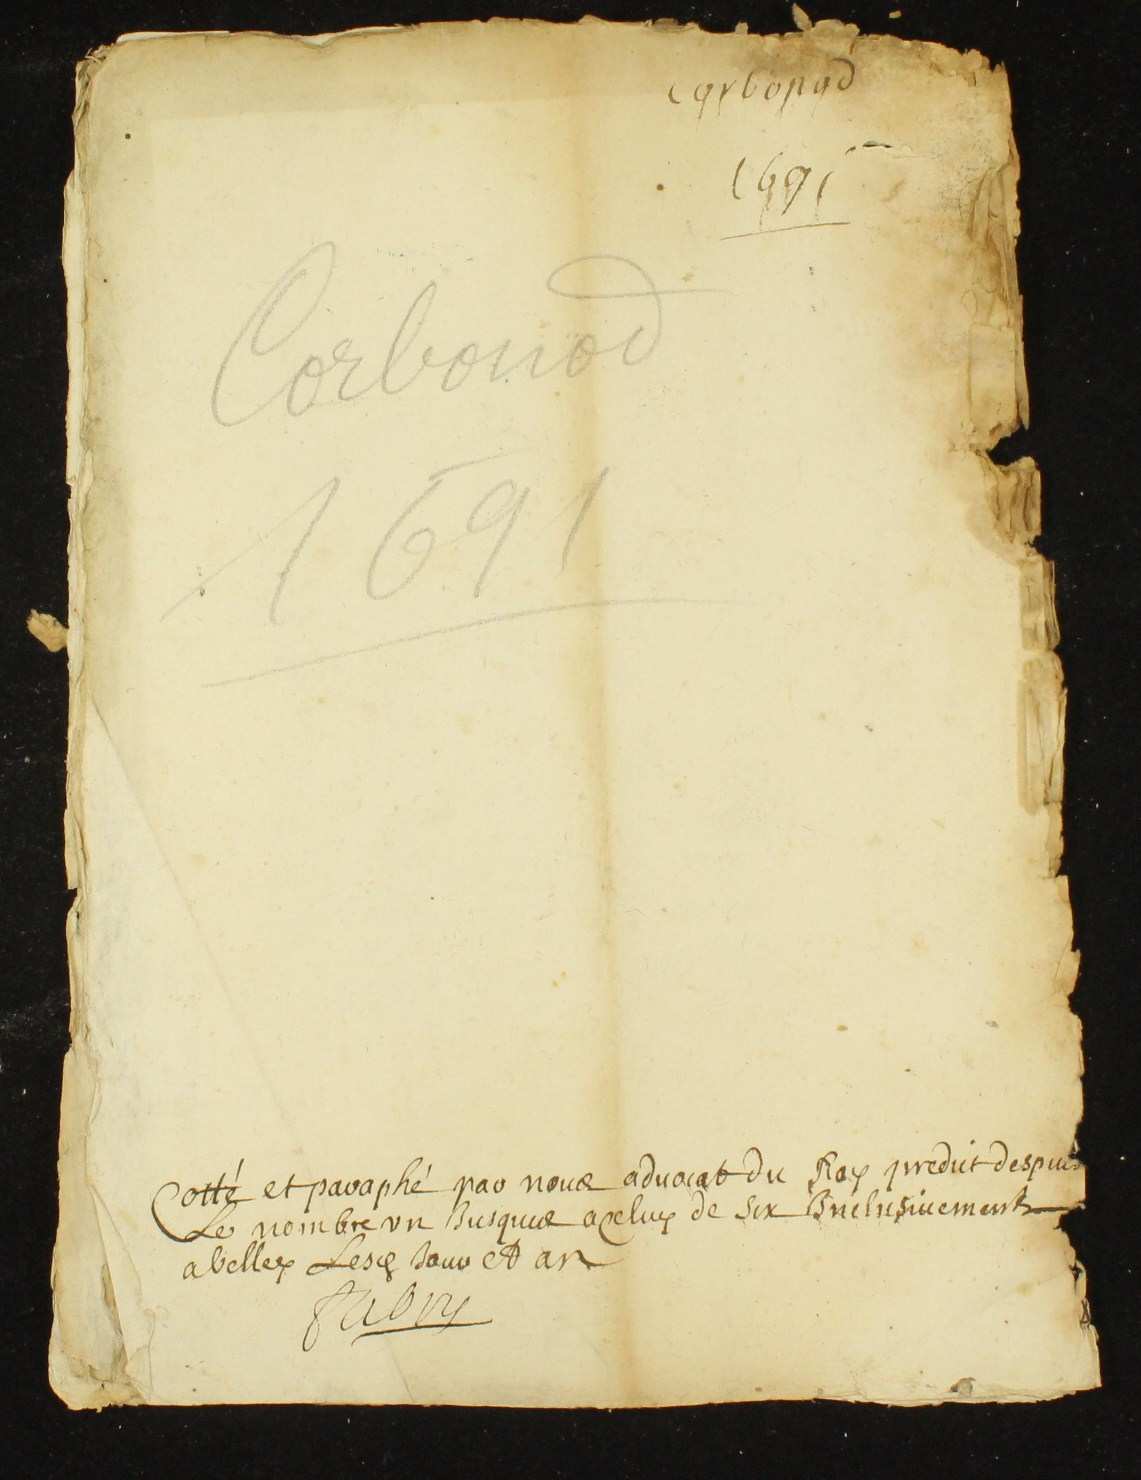 Corbonod
1691
Corbonod
1691
Cotté et paraphé par nous aduocat du Roy predit despuis
Le nombre un Jusques a celuy de six Inclusiuement
a belley Lesd jour et an
Fabry